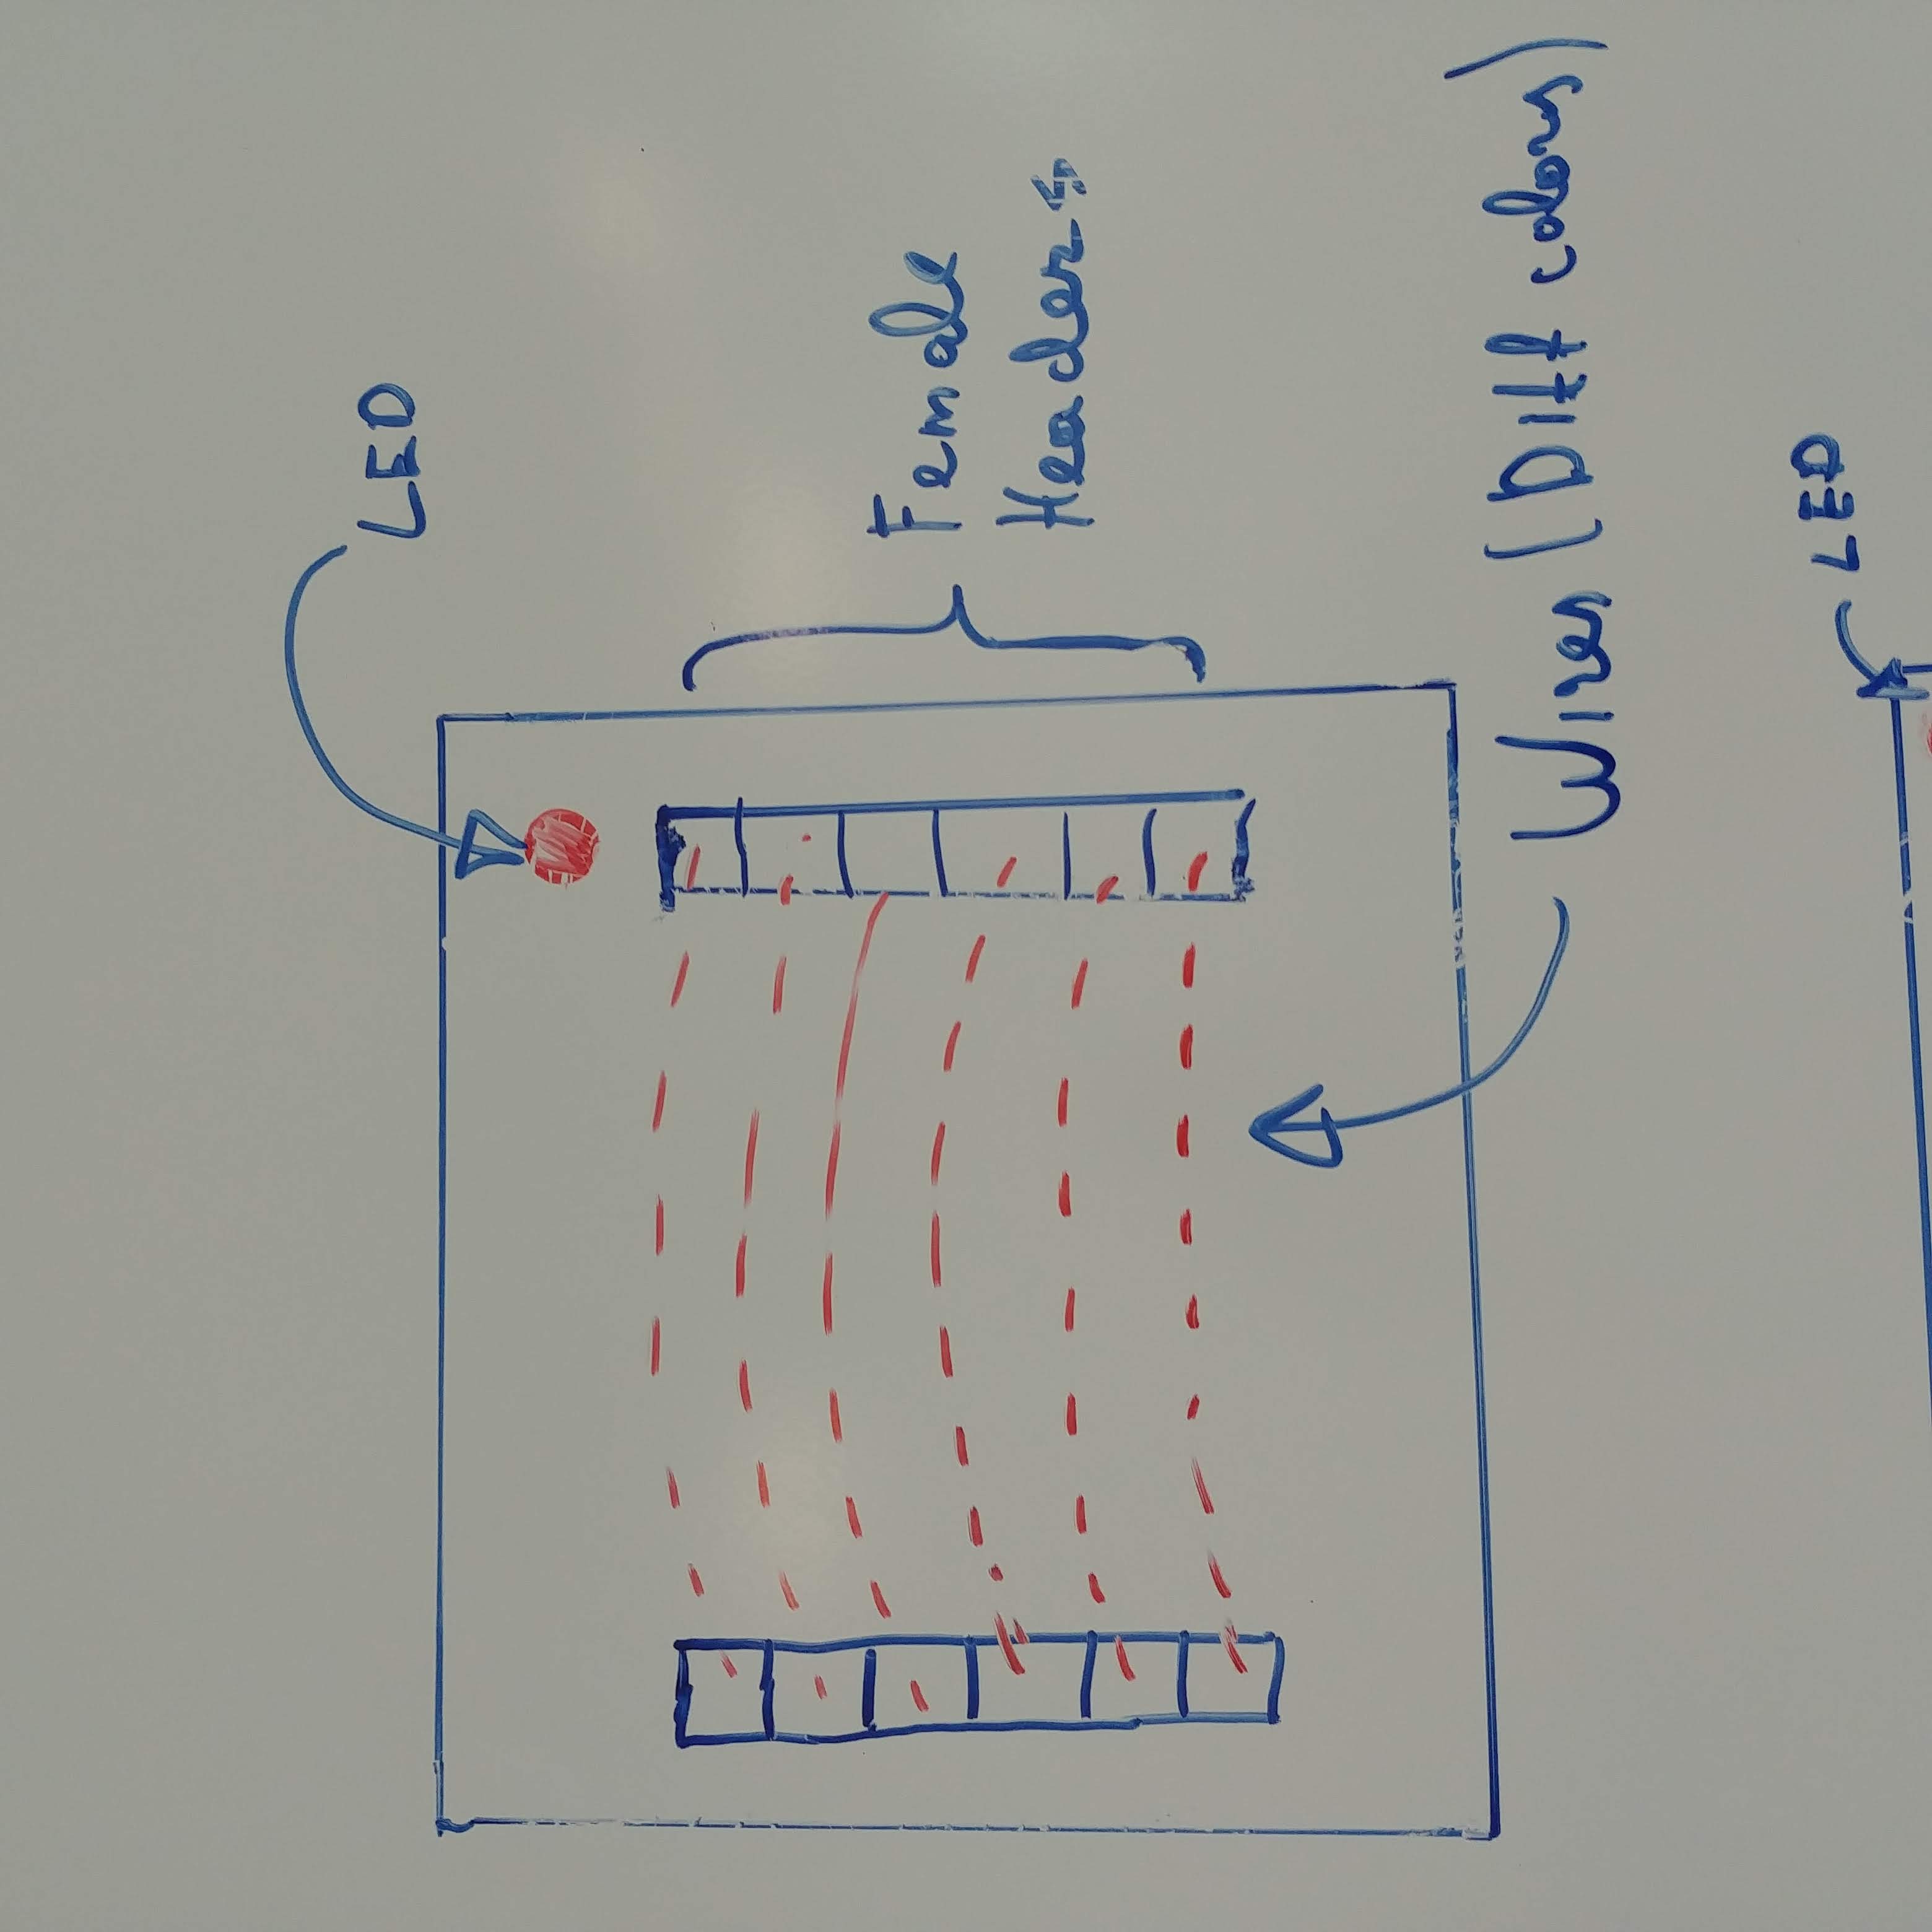 LED
Female
Headers
Wires (Diff colors)
LED